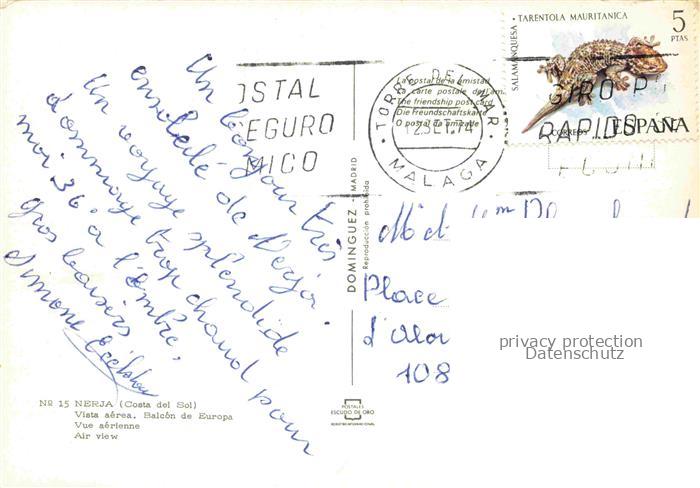 Un bonjour très
ensoleillé de Nerja.
Un voyage splendide
dommage trop chaud pour
moi 36° à l'ombre.
gros baisers
Simone
Nº 15 NERJA (Costa del Sol)
Vista aérea. Balcón de Europa
Vue aérienne
Air view
OSTAL
EGURO
MICO
DOMINGUEZ - MADRID
Reproducción prohibida
POSTALES
ESCUDO DE ORO
La postal de la amistad
La carte postale de l'am
The friendship post card
Die Freundschaftskarte
O postal da amizade
TORRE DEL MAR
12 SET. 74
MALAGA
SALAMANQUESA · TARENTOLA MAURITANICA
5
PTAS
GIRO P
RAPIDO
CORREOS ESPAÑA
Place
d'
108
privacy protection
Datenschutz